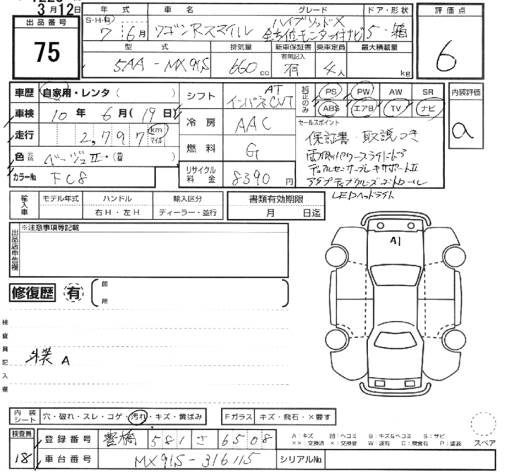 3月12日
出品番号
75
年式 車名 グレード ドア・形状
S・H・R 7年6月 ワゴンRスマイル ハイブリッドX 全方位モニター付ナビ 5・箱
型式 排気量 新車保証書 乗車定員 最大積載量
5AA-MX91S 660cc 有 4人 kg
評価点
6
内装評価
a
車歴 自家用・レンタ( )
車検 10年6月(19日)
走行 2,797 km マイル
色 ベージュⅡ・( )
カラーNo FC8
シフト AT インパネCVT
冷房 AAC
燃料 G
リサイクル料金 8390円
純正のみ
PS PW AW SR
ABS エアB TV ナビ
セールスポイント
保証書・取説つき
両側パワースライドドア
デュアルセンサーブレーキサポートⅡ
アダプティブクルーズコントロール
LEDヘッドライト
輸入車 モデル年式 ハンドル 輸入区分 書類有効期限
年 右H・左H ディーラー・並行 月 日迄
出品店申告欄
※注意事項等記載
修復歴 有
検査員記入欄
A
A1
内装シート 穴・破れ・スレ・コゲ・汚れ・キズ・黄ばみ Fガラス キズ・飛石・×要す
検査員
18
登録番号 豊橋 581 さ 6508
車台番号 MX91S-316115 シリアルNo
スペア